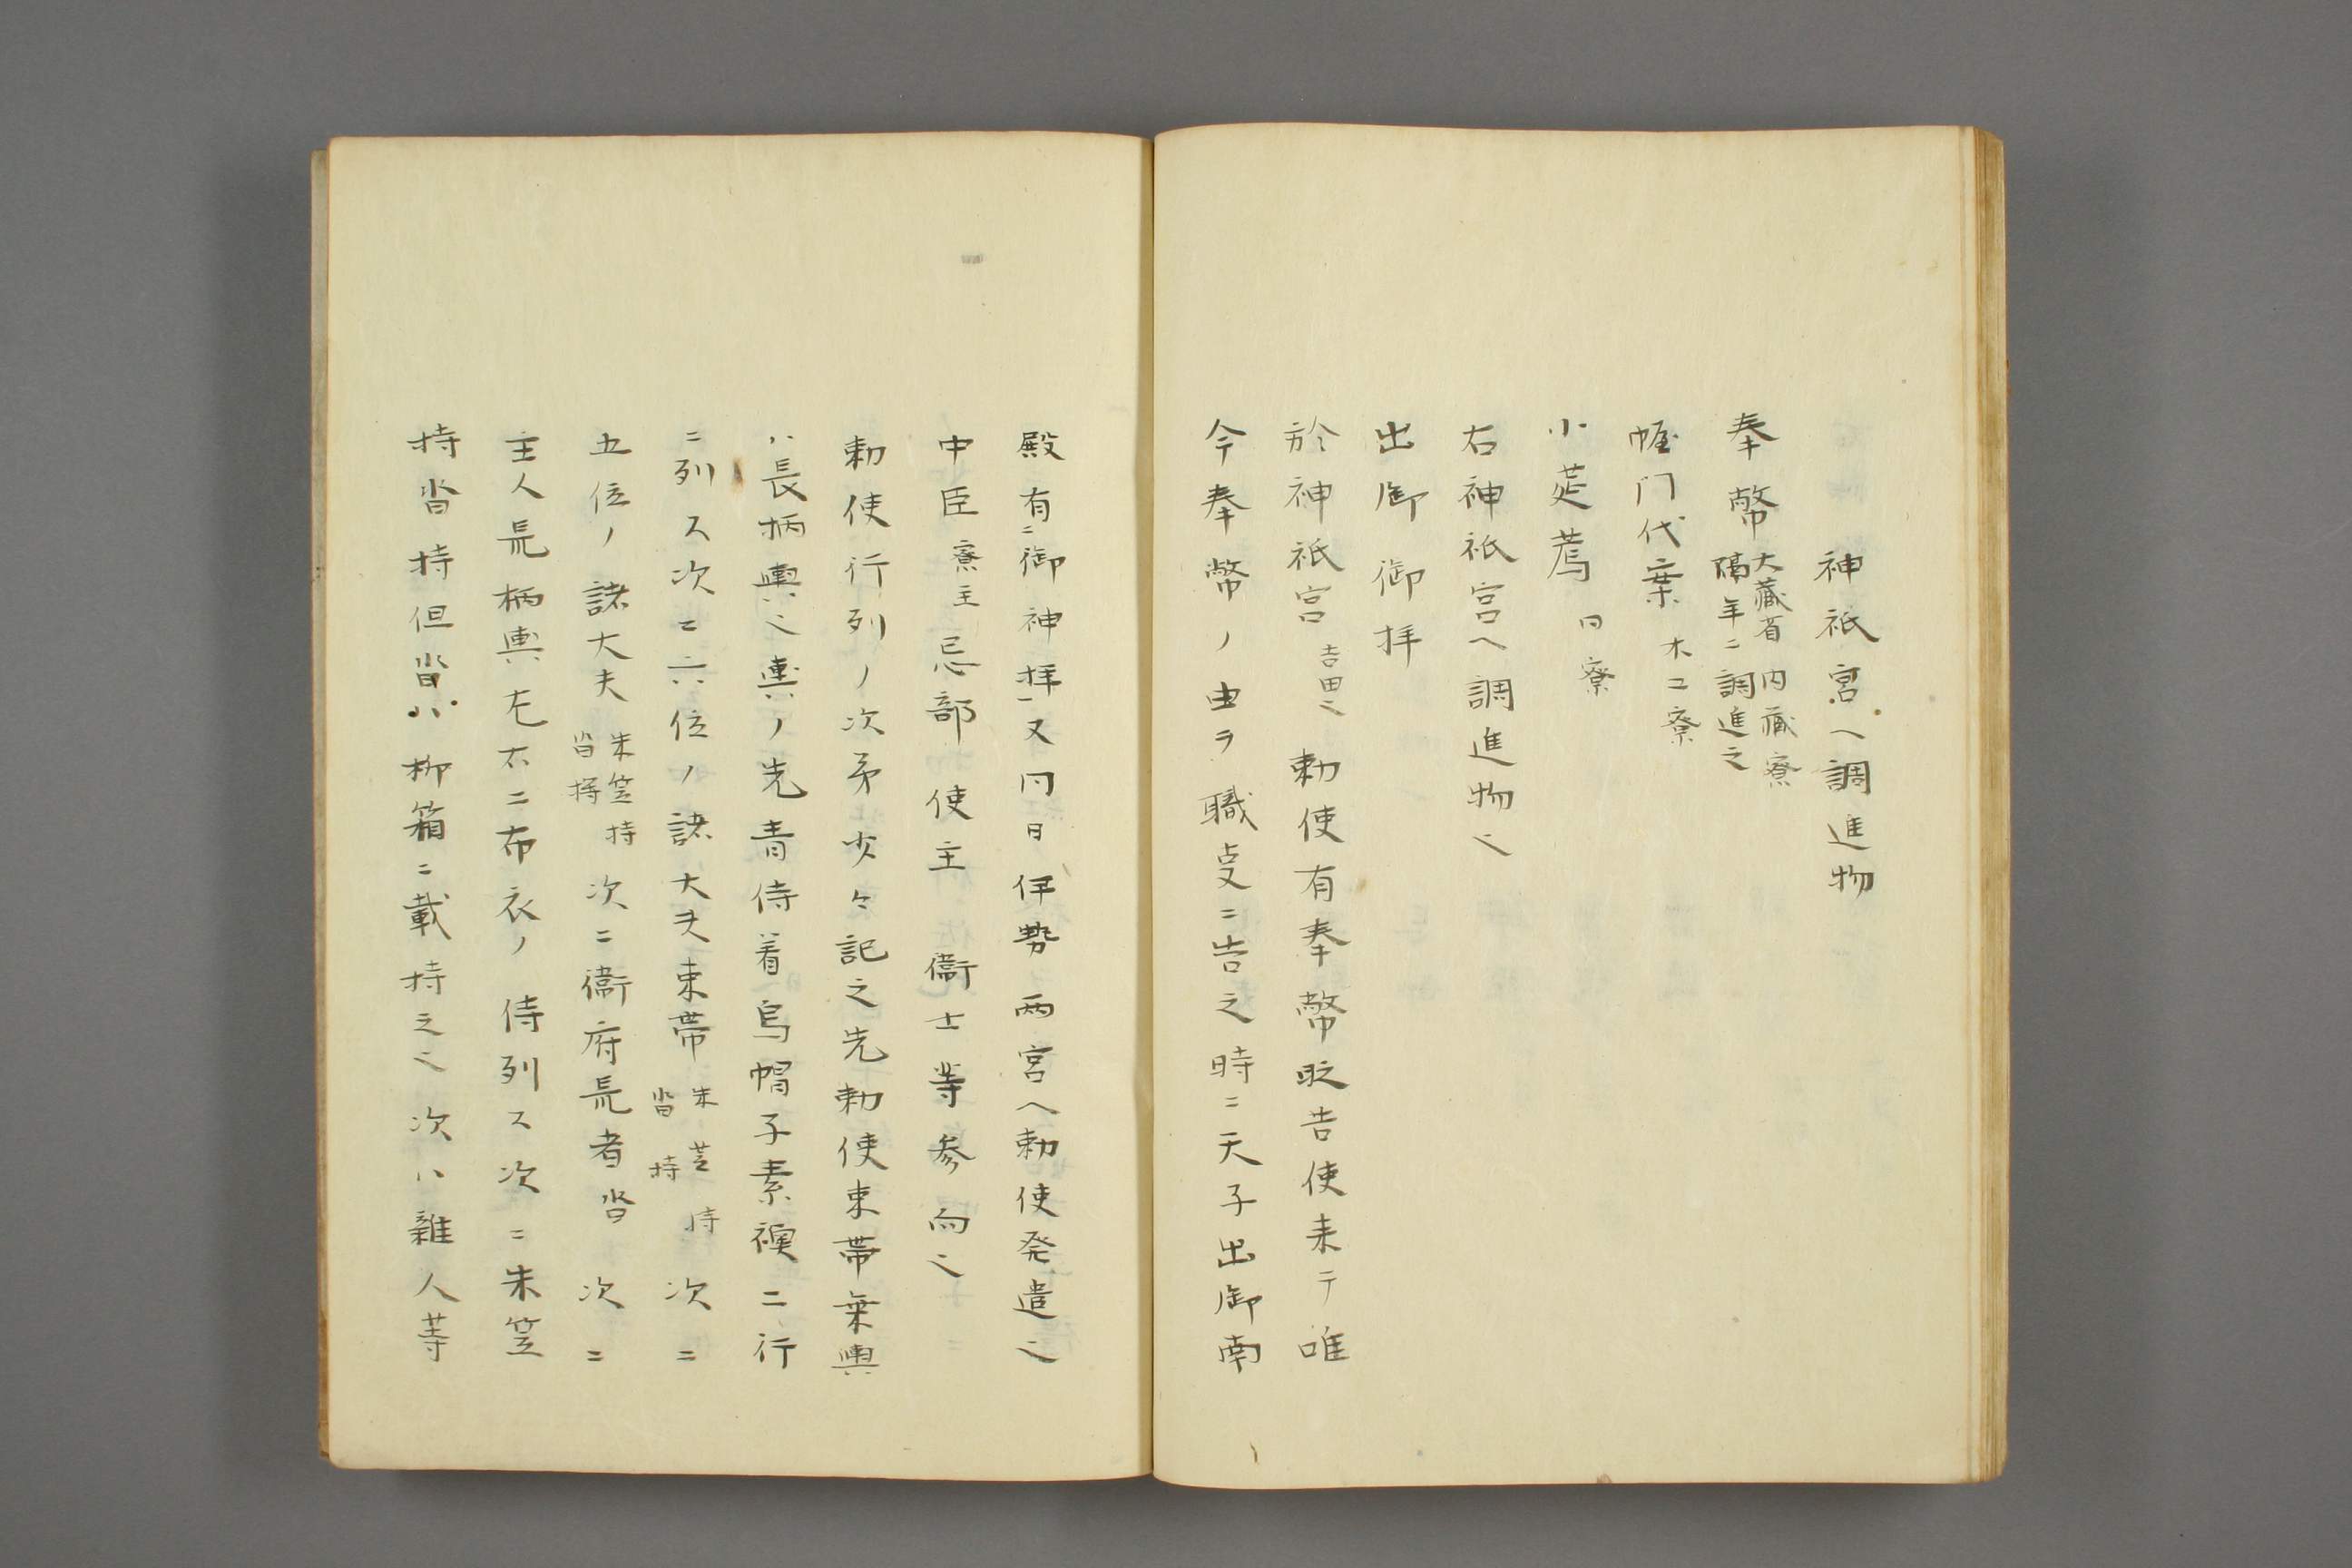 神祇宮へ調進物
奉幣 大蔵省内蔵寮
隔年ニ調進之
幄門代棄 木工寮
小莚薦 同寮
右神祇宮へ調進物也
出御御拝
於神祇宮 吉田也 勅使有奉幣政告使来テ唯
今奉幣ノ由ヲ職叓ニ告之時ニ天子出御南
殿有ニ御神拝一又同日伊勢両宮へ勅使発遣也
中臣 寮主 忌部 使主 衞士等参向也
勅使行列ノ次㐧少々記之先勅使束帯乗輿
ハ長柄輿也輿ノ先青侍着烏帽子素襖二行
ニ列ス次ニ六位ノ諸大夫束帯 朱笠持
沓持 次ニ
五位ノ諸大夫 朱笠持
沓持 次ニ衞府長者沓 次ニ
主人長柄輿左右ニ布衣ノ侍列ス次ニ朱笠
持沓持但沓ハ柳箱ニ載持之也次ハ雑人等